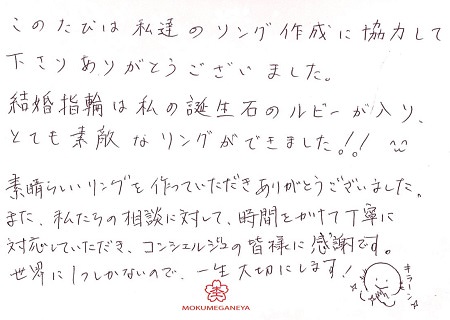 このたびは私達のリング作成に協力して
下さりありがとうございました。
結婚指輪は私の誕生石のルビーが入り、
とても素敵なリングができました!!
素晴らしいリングを作っていただきありがとうございました。
また、私たちの相談に対して、時間をかけて丁寧に
対応していただき、コンシェルジュの皆様に感謝です。
世界に1つしかないので、一生大切にします!
キラーン
MOKUMEGANEYA